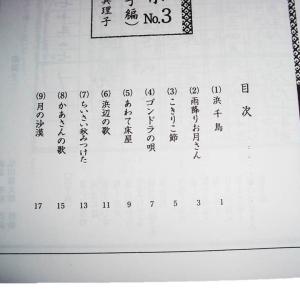 No.3
編)
眞理子
目次
(1) 浜千鳥 1
(2) 雨降りお月さん 3
(3) こきりこ節 5
(4) ゴンドラの唄 7
(5) あわて床屋 9
(6) 浜辺の歌 11
(7) ちいさい秋みつけた 13
(8) かあさんの歌 15
(9) 月の沙漠 17